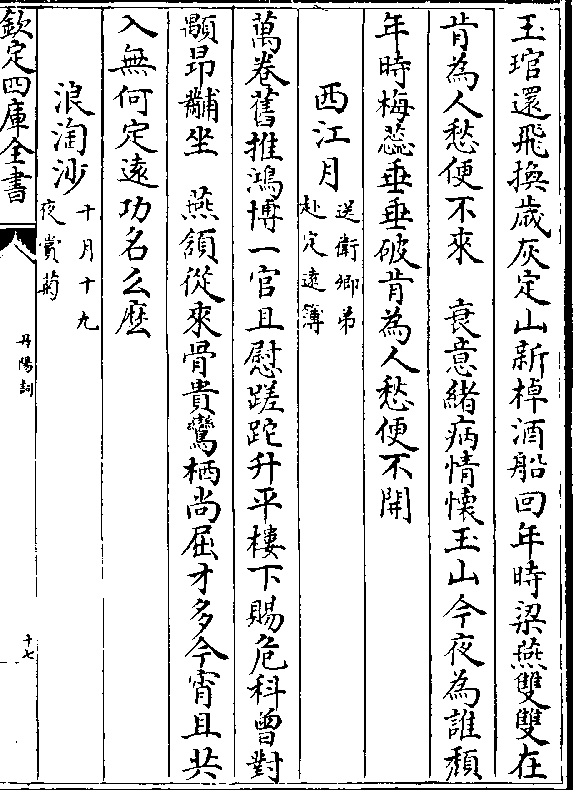 玉琯還飛換歲灰定山新棹酒船回年時梁燕雙雙在
肯為人愁便不來　衰意緒病情懷玉山今夜為誰頽
年時梅蕊垂垂破肯為人愁便不開
西江月送衛卿弟赴定遠簿
萬卷舊推鴻博一官且慰蹉跎升平樓下賜危科曾對
顒昂黼坐　燕頷從來骨貴鸞栖尚屈才多今宵且共
入無何定遠功名么麽
浪淘沙十月十九夜賞菊
欽定四庫全書
丹陽詞
十七